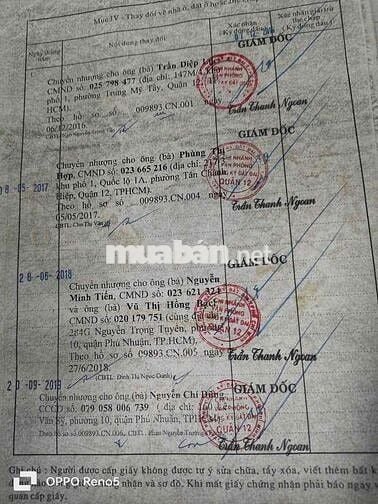 Mục IV - Thay đổi về nhà ở, đất ở hoặc
Ngày tháng
Nội dung thay đổi
Xác nhận
(Ký đóng dấu)
Xác nhận giải trừ
thế chấp
(Ký đóng dấu)
GIÁM ĐỐC
Chuyển nhượng cho ông (bà) Trần Diệp
025 798 477 (địa chỉ: 147M
phố 1, phường Trung Mỹ Tây, Quận 12
HCM).
Theo hồ sơ số 009893.CN.001
06/12/2016.
Trần Thanh Ngoan
08-05-2017
Chuyển nhượng cho ông (bà) Phùng Thị
Hợp, CMND số: 023 665 216 (địa chỉ: 21/
khu phố 1, Quốc lộ 1A, phường Tân Chánh
Hiệp, Quận 12, TPHCM).
Theo hồ sơ số 009893.CN.004
05/05/2017.
GIÁM ĐỐC
QUẬN 12
Trần Thanh Ngoan
muaban.net
28-06-2018
Chuyển nhượng cho ông (bà) Nguyễn
Minh Tiến, CMND số: 023 621 324
và ông (bà) Vũ Thị Hồng Bạch
CMND số: 020 179 751 (cùng địa chỉ:
284G Nguyễn Trọng Tuyển, phường
10, quận Phú Nhuận, TP.HCM).
Theo hồ sơ 09893.CN.005
27/6/2018.
CBTL: Đinh Thị Ngọc Oanh
GIÁM ĐỐC
QUẬN 12
Trần Thanh Ngoan
20-09-2019
Chuyển nhượng cho ông (bà) Nguyễn Chí Dũng
CCCD số: 079 058 006 739 (địa chỉ: 160
Văn Sỹ, phường 10, quận Phú Nhuận, TPHCM)
Theo hồ sơ số 009893.CN.006
GIÁM ĐỐC
QUẬN 12
Trần Thanh Ngoan
Ghi chú: Người được cấp giấy không được tự ý sửa chữa, tẩy xóa, viết thêm bất k
nhận và sơ đồ. Khi mất giấy chứng nhận phải báo ngay v
quan cấp giấy.
OPPO Reno5